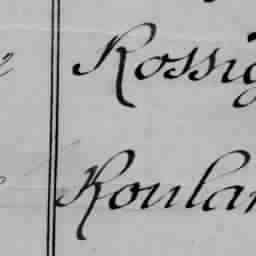 Rossig
Roular